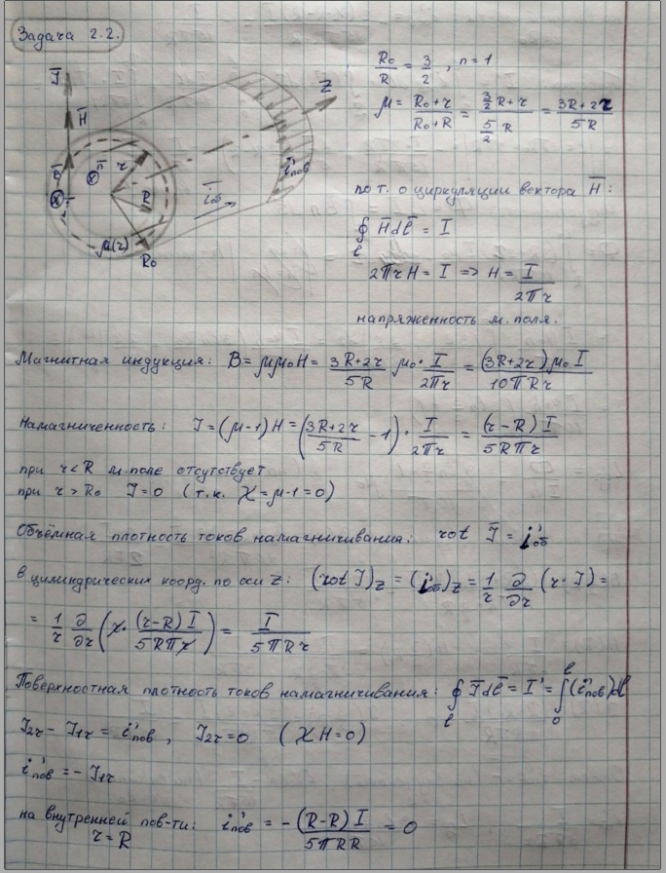 Задача 2.2.
R₀/R = 3/2, n = 1
μ = (R₀+r)/(R₀+R) = (3/2 R+r)/(5/2 R) = (3R+2r)/5R
J̄
H̄
B̄
n̄
r
R
R₀
μ(r)
Z
i'пов
i̅об
по т. о циркуляции вектора H̄:
∮ₗ H̄dl̄ = I
2πrH = I => H = I/2πr
напряженность м. поля.
Магнитная индукция: B = μμ₀H = (3R+2r)/5R μ₀ · I/2πr = (3R+2r)μ₀I/10πRr
Намагниченность: J = (μ-1)H = ((3R+2r)/5R - 1) · I/2πr = (r-R)I/5Rπr
при r<R м. поле отсутствует
при r>R₀ J=0 (т.к. χ=μ-1=0)
Объёмная плотность токов намагничивания: rot J̄ = i̅'об
в цилиндрических коорд. по оси z: (rot J)z = (i'об)z = 1/r ∂/∂r (r·J) =
= 1/r ∂/∂r (r· (r-R)I/5Rπr) = I/5πRr
Поверхностная плотность токов намагничивания: ∮ₗ J̄dl̄ = I' = ∫₀ˡ(i'пов)dl
J₂τ - J₁τ = i'пов, J₂τ=0 (χH=0)
i'пов = -J₁τ
на внутренней пов-ти: i'пов = - (R-R)I/5πRR = 0
r=R